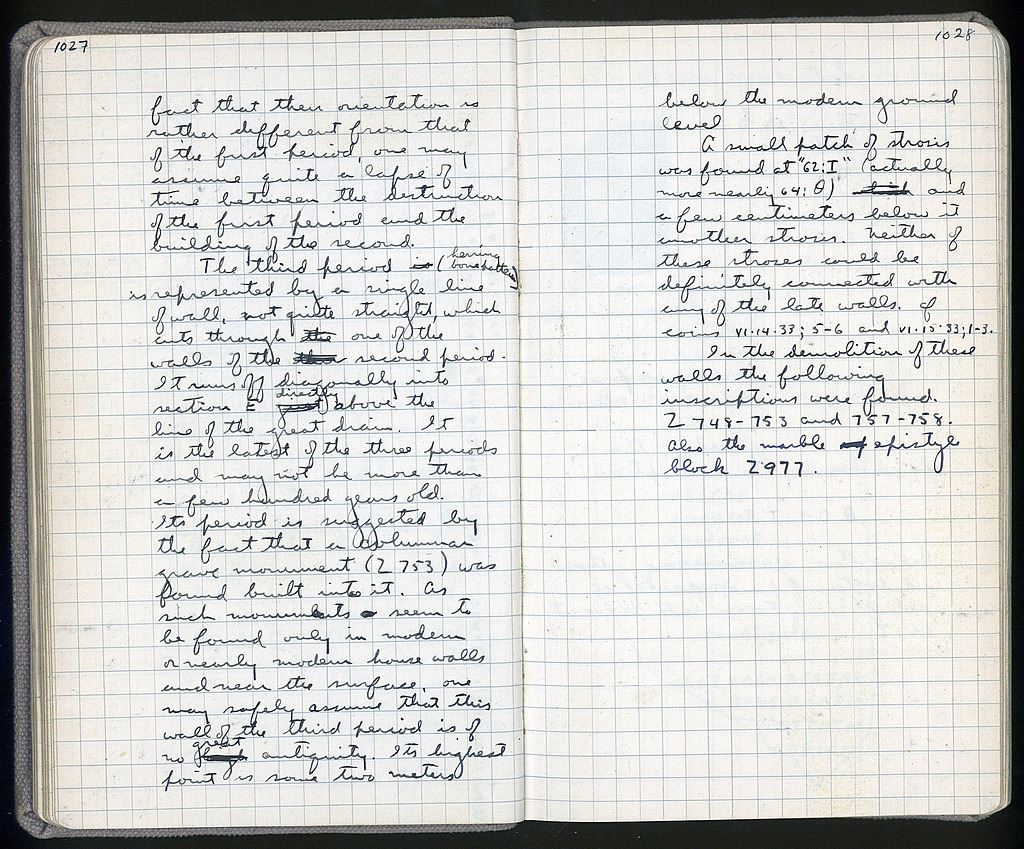 1027
fact that their orientation is
rather different from that
of the first period, one may
assume quite a lapse of
time between the destruction
of the first period and the
building of the second.
The third period (herring
bone pattern)
is represented by a single line
of wall, not quite straight, which
cuts through one of the
walls of the second period.
It runs off diagonally into
directly
section E above the
line of the great drain. It
is the latest of the three periods
and may not be more than
a few hundred years old.
Its period is suggested by
the fact that a columnar
grave monument (Z 753) was
found built into it. As
such monuments seem to
be found only in modern
or nearly modern house walls
and near the surface, one
may safely assume that this
wall of the third period is of
great
no antiquity. Its highest
point is some two meters
1028
below the modern ground
level
A small patch of stroses
was found at "62:I" (actually
more nearly 64:Θ) and
a few centimeters below it
another stroses. Neither of
these stroses could be
definitely connected with
any of the late walls. cf
coins VI·14·33; 5-6 and VI·15·33; 1-3.
In the demolition of these
walls the following
inscriptions were found.
Z 748-753 and 757-758.
Also the marble epistyle
block Z977.